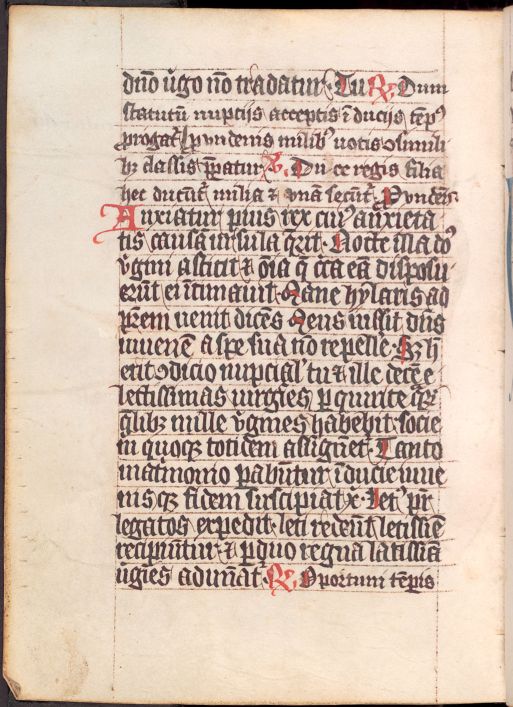 dn̄o v̓go nō tradatur· Tu ℟ Dum
statutū nuptijs acceptis īducijs tēpꝰ
ꝓrogat᷑ Vndenis milibꝰ votis ↄsimili
bꝫ classis ꝑatur ℣. Duce regis filia
hec ducūt᷑ milia ⁊ secūt᷑ Vndenis
Anxiatur pius rex cuiꝰ anxieta
tis causam insula q̄rit· Nocte illa dō
v̓gini astitit ⁊ oīa q̄ circa eā disposu
erūt ei intimauit· Mane hylaris ad
pr̄em uenit dicēs Mens iussit dn̄s
iuuenē a spe sua nō repelle· Sꝫ h̄
erit ↄdicio nupcial᷑ tu ⁊ ille decē e
lectissimas uirgīes ꝑ quirite
qlibꝫ mille v̓gines habebit· socie
tu quoqꝫ totidem assignet· Tanto
matrimonio ꝑabūntur īducie iuue
nisqꝫ fidem suscipiat xͥ· Letꝰ pr̄
legatos expedit· leti redeūt letissīe
recipiūntur· ⁊ ꝑ duo regna latissīa
v̓gīes adunāt᷑ ℟ Oportum tēpis